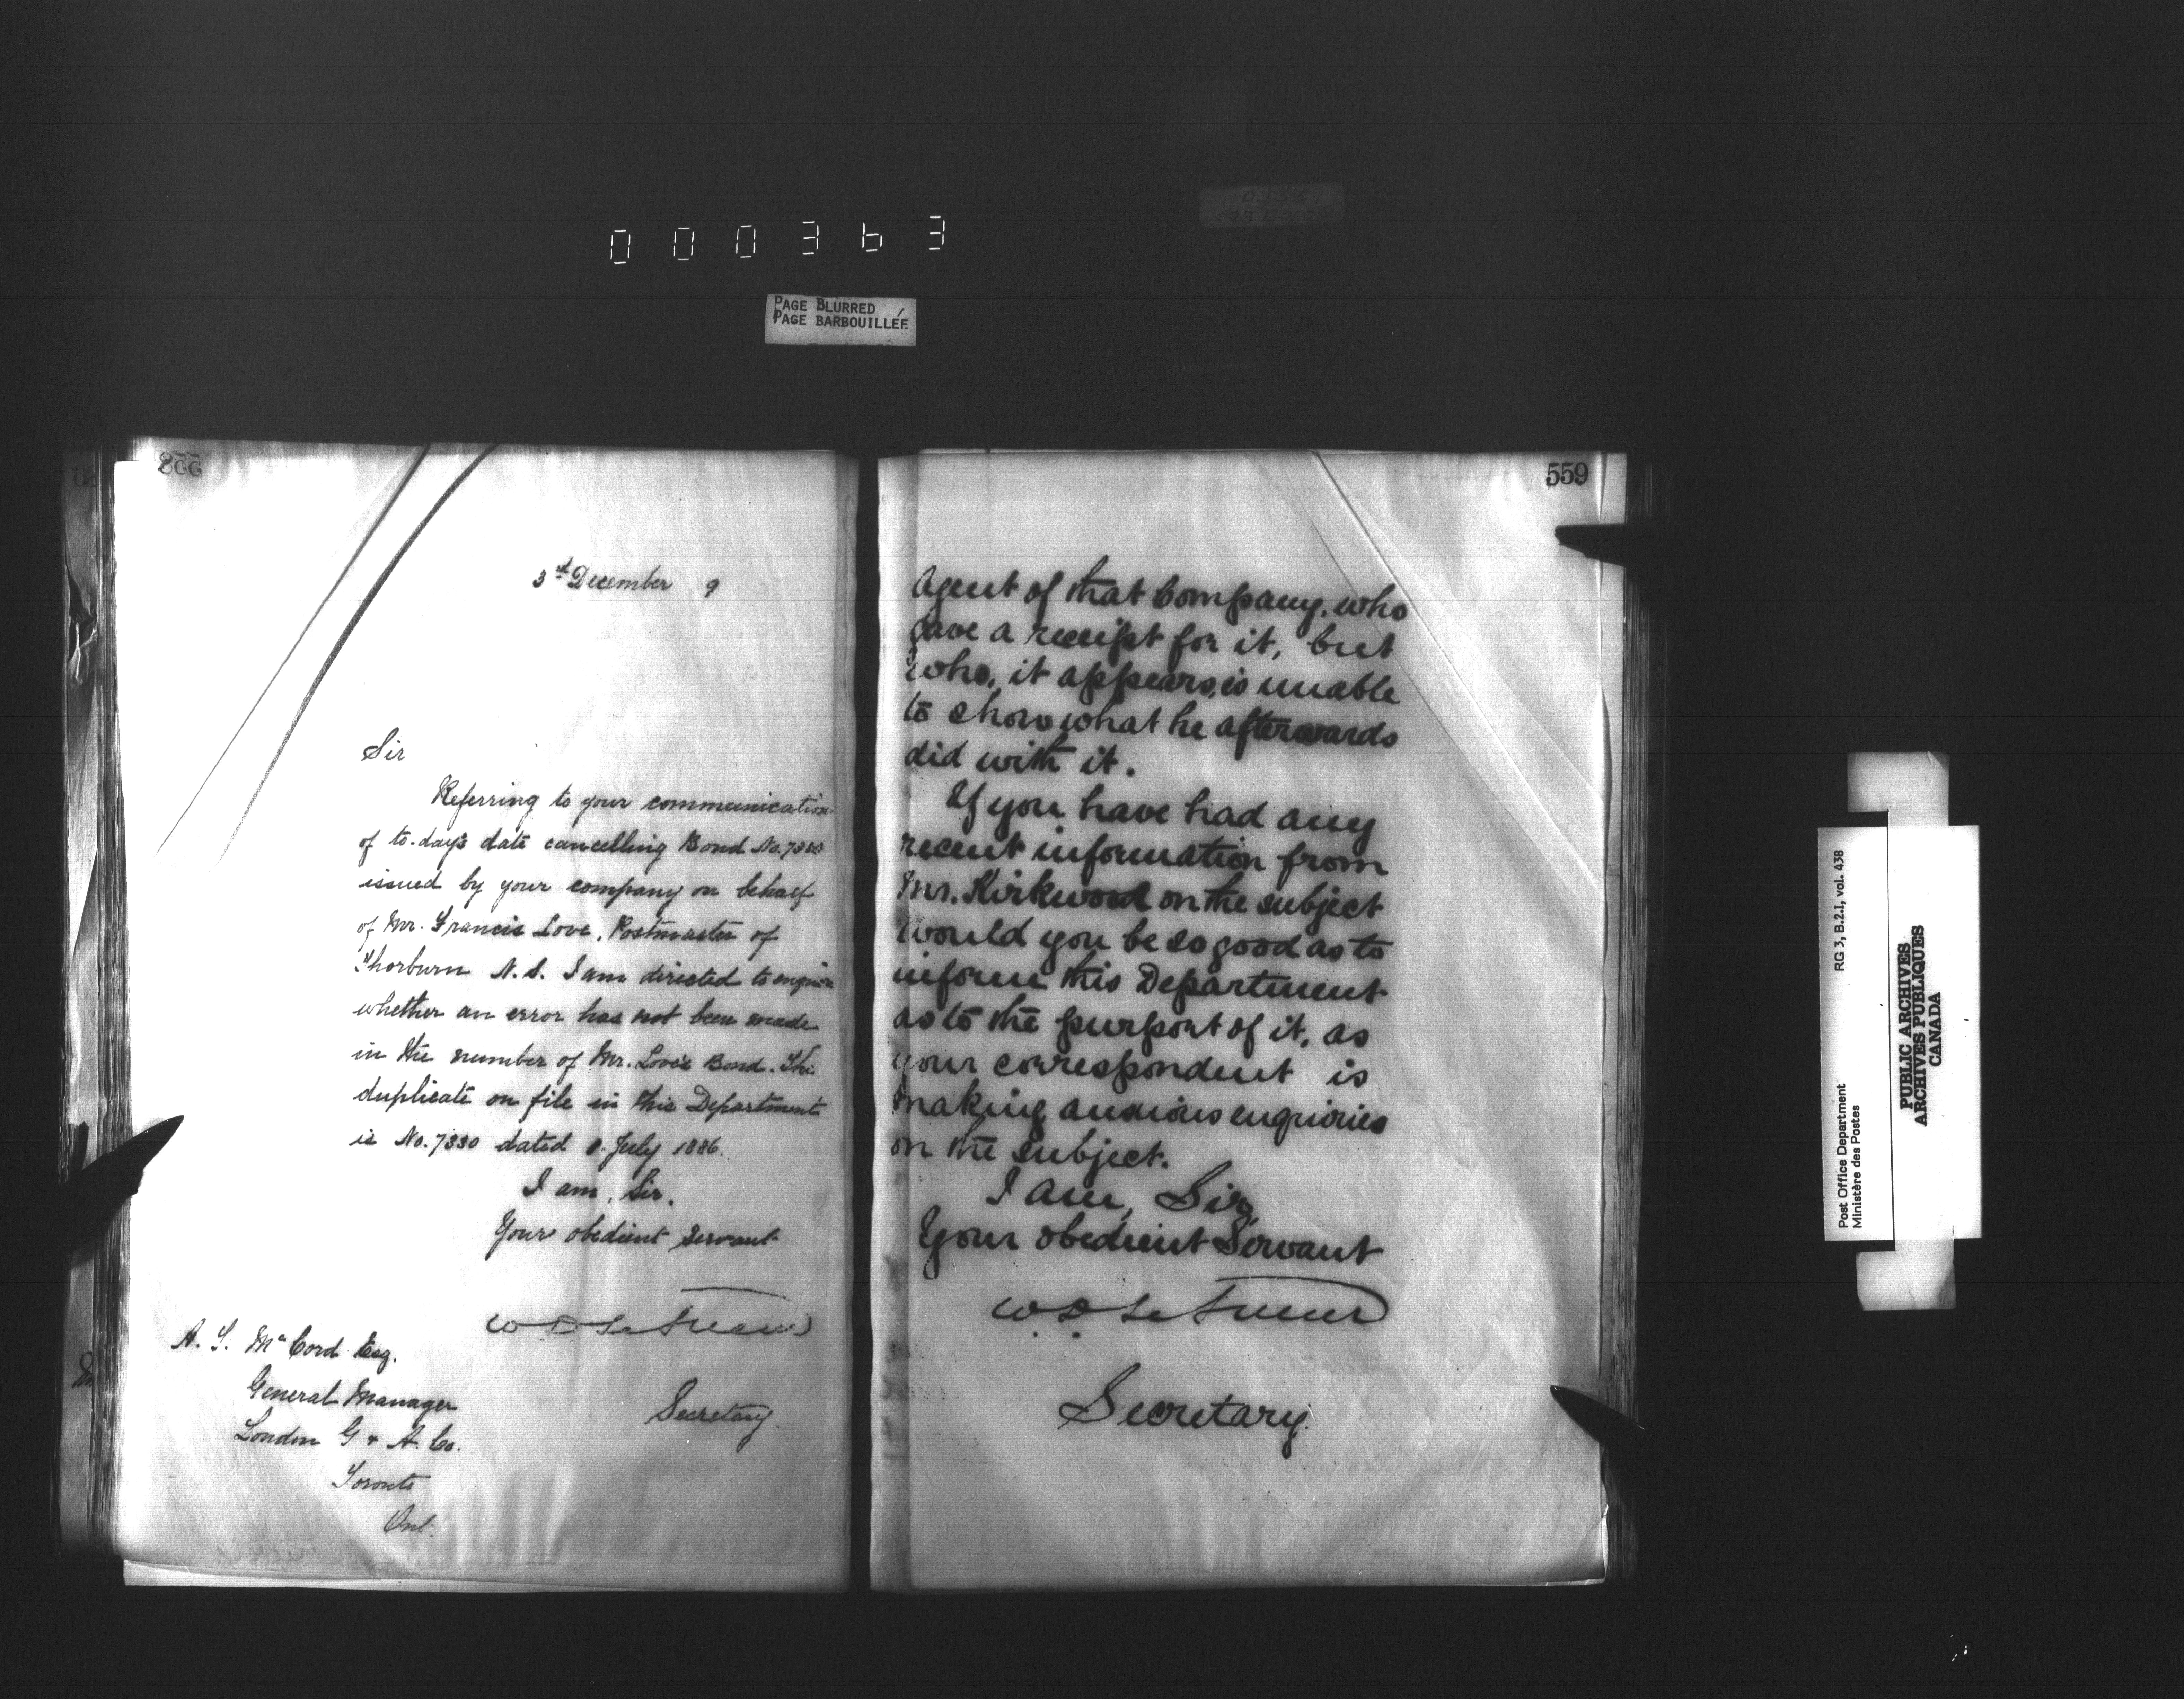 000363
PAGE BLURRED
PAGE BARBOUILLÉE
3rd December 9
Sir
Referring to your communication
of to-day's date cancelling Bond No.
issued by your company on behalf
of Mr. Francis Love, Postmaster of
Thorburn N.S. I am directed to enquire
whether an error has not been made
in the number of Mr. Love's Bond. The
duplicate on file in this Department
is No. 7330 dated July 1886.
I am, Sir.
Your obedient Servant
W D LeSueur
Secretary.
A. McCord Esq.
General Manager
London G & A. Co.
Toronto
Ont.
559
Agent of that Company, who
gave a receipt for it, but
who, it appears, is unable
to show what he afterwards
did with it.
If you have had any
recent information from
Mr. Kirkwood on the subject
would you be so good as to
inform this Department
as to the purport of it, as
your correspondent is
making anxious enquiries
on the subject.
I am, Sir,
Your obedient Servant
W D LeSueur
Secretary.
Post Office Department
Ministère des Postes
RG 3, B.2.I, vol. 438
PUBLIC ARCHIVES
ARCHIVES PUBLIQUES
CANADA